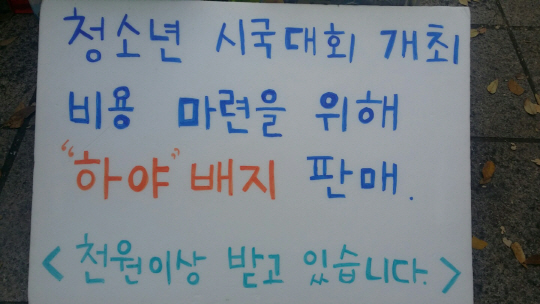 청소년 시국대회 개최
비용 마련을 위해
"하야" 배지 판매.
< 천원이상 받고 있습니다. >